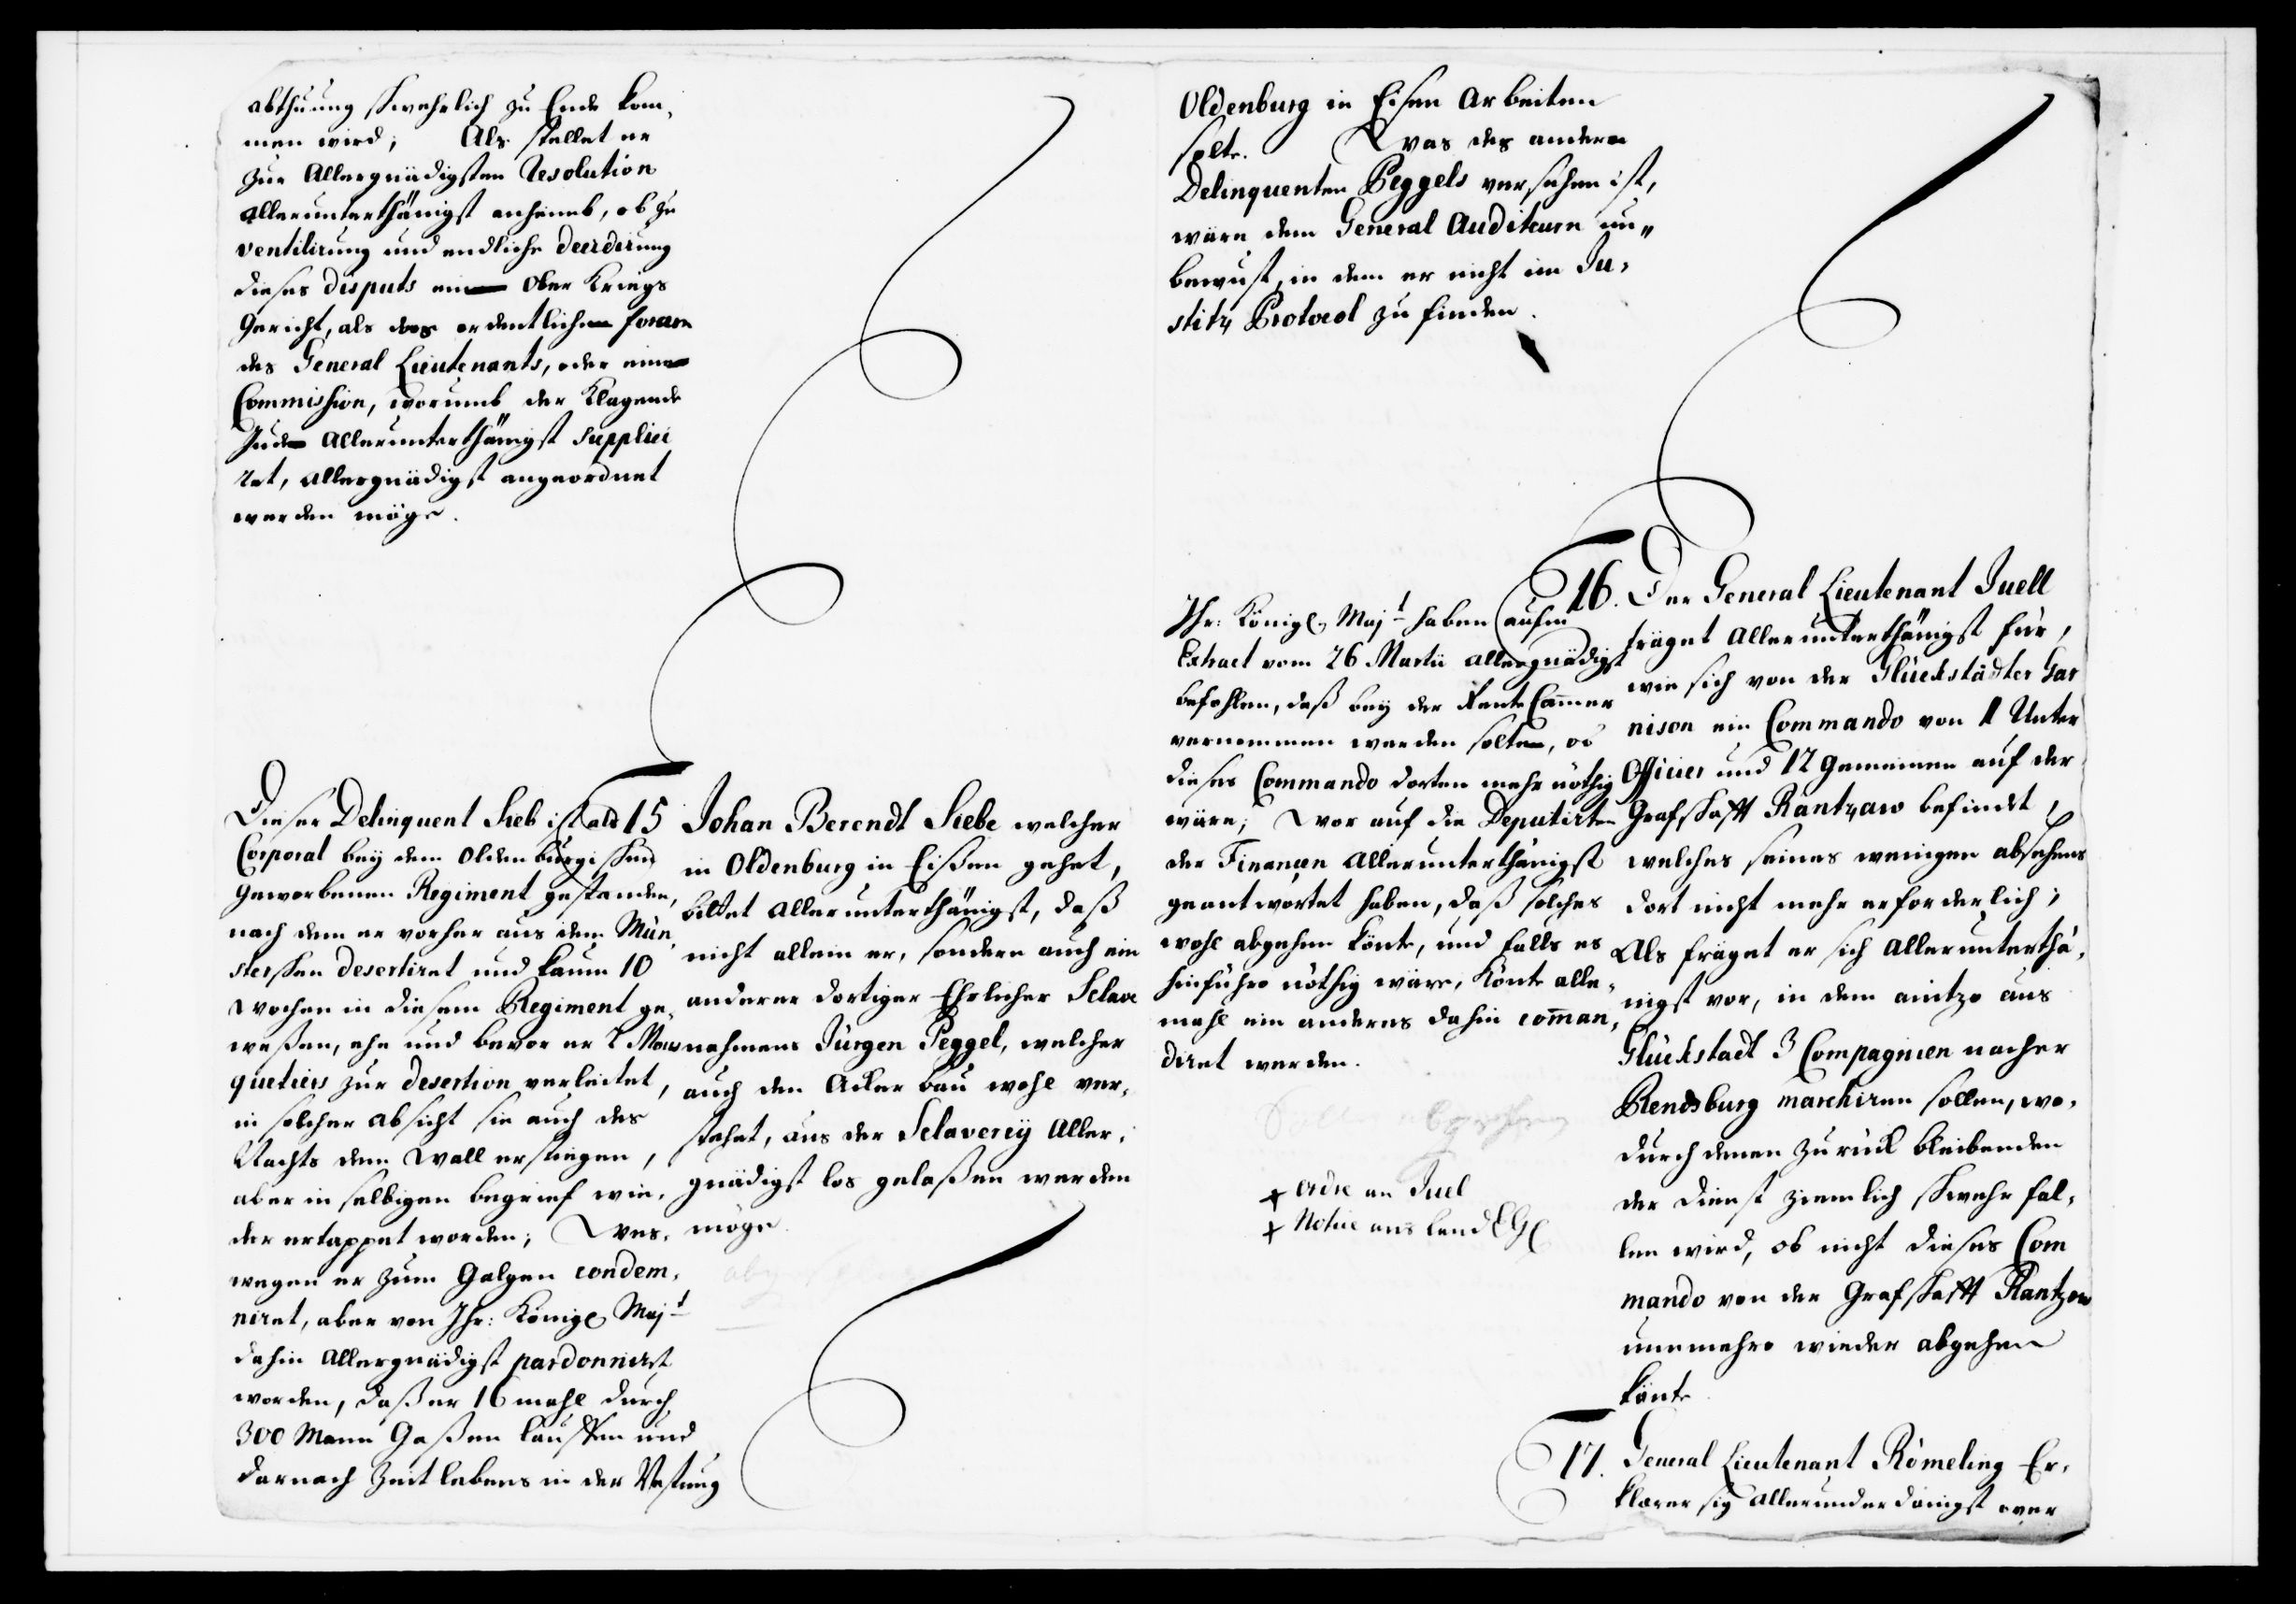 abthuung schwehrlich zu Ende kom,
men wird; Als stellet er
zur Allergnädigsten Resolution
allerunterthänigst anheimb, ob zu
ventilirung und endliche decidirung
dieses disputs ein Ober Kriegs
Gericht, als das ordentliche forum
des General Lieutenants, oder eine
Commission, worumb der Klagende
Jude Allerunterthänigst supplici
ret, allergnädigst angeordnet
werden möge.
Dieser Delinquent Sieb ist als
Corporal bey dem Oldenburgischen
Geworbenen Regiment gestanden,
nach dem er vorher aus dem Mün,
sterschen desertiret und kaum 10
Wochen in diesem Regiment ge,
weßen, ehe und bevor er 2 Mous
quetiers zur desertion verleitet,
in solcher absicht sie auch des
Nachts den Wall erstiegen,
aber in selbigen begrief wie,
der ertappet worden; Wes,
wegen er zum Galgen condem,
niret, aber von Ihr: Königl Majt
dahin Allergnädigst pardonnirt
worden, daß er 16 mahl durch
300 Mann Gaßen lauffen und
darnach Zeit lebens in der Vestung
15 Johan Berendt Siebe welcher
in Oldenburg in Eißen gehet,
bittet allerunterthänigst, daß
nicht allein er, sondern auch ein
anderer dortiger Ehrlicher Sclave
nahmens Jürgen Peggel, welcher
auch den Acker bau wohl ver,
stehet, aus der Sclaverey Aller,
gnädigst los gelaßen werden
möge.
Oldenburg in Eisen Arbeiten
solte. Was des andern
Delinquenten Peggels versehen ist,
wäre dem General Auditeurn un,,
bewust, in dem er nicht im Ju,
stitz Protocol zu finden.
Ihr: Königl. Majt haben aufm
Extract vom 26 Martii allergnädigst
befohlen, daß bey der Rente Cammer
vernommen werden solte, ob
dieses Commando dorten mehr nöthig
wäre; Wor auf die Deputirten
der Financen Allerunterthänigst
geantwortet haben, daß solches
wohl abgehen könte, und falls es
hinführo nöthig wäre, könte alle,
mahl ein anderes dahin comman,
diret werden.
+ Ordre an Juel
+ Notice ans Land
16. Der General Lieutenant Juell
fräget Allerunterthänigst für,
wie sich von der Glückstädter Gar
nison ein Commando von 1 Unter
Officier und 12 Gemeinen auf der
Grafschafft Rantzaw befindet,
welches seines wenigen absehens
dort nicht mehr erforderlich;
Als fräget er sich Allerunterthä,
nigst vor, in dem anitzo aus
Glückstadt 3 Compagnien nacher
Rendsburg marchiren sollen, wo,
durch denen zurück bleibenden
der dienst ziemlich schwehr fal,
len wird, ob nicht dieses Com
mando von der Grafschafft Rantzow
nunmehro wieder abgehen
könte.
17. General Lieutenant Römeling Er,
klærer sig allerunderdanigst over